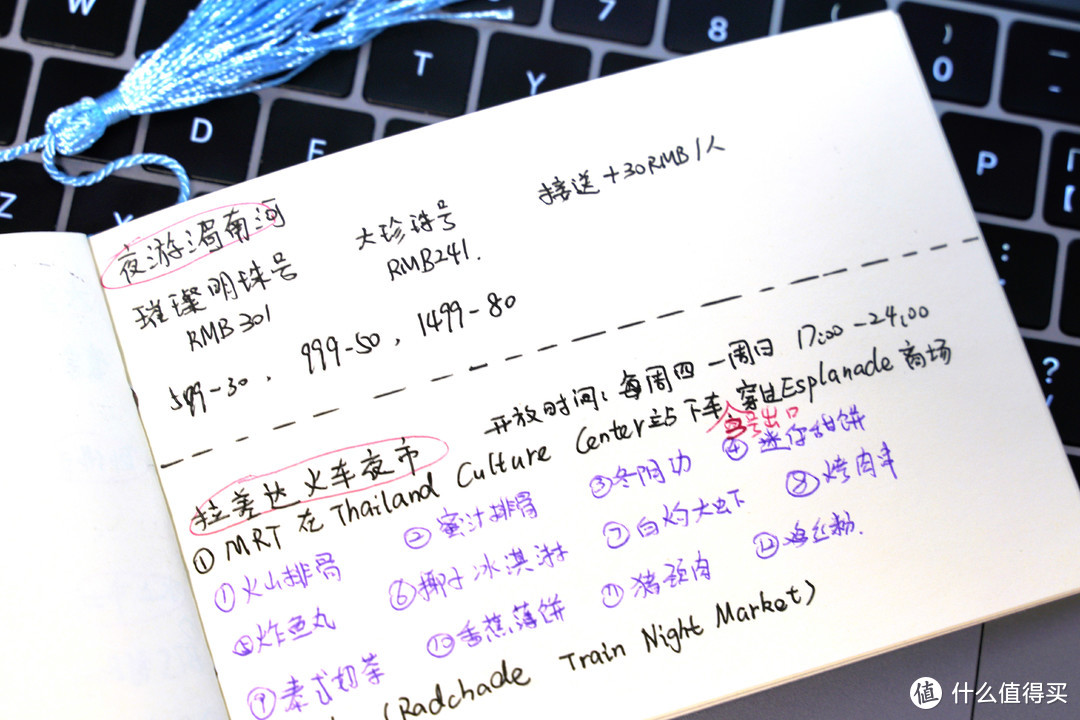 夜游湄南河
璀璨明珠号
RMB 301
大珍珠号
RMB241.
接送 +30RMB/人
599-30 , 999-50 , 1499-80
开放时间: 每周四 — 周日 17:00 - 24:00
拉差达火车夜市
① MRT 在 Thailand Culture Center站下车 穿过Esplanade 商场
号出口
①火山排骨 ②蜜汁排骨 ③冬阴功 ④迷你甜饼
⑤炸鱼丸 ⑥椰子冰淇淋 ⑦白灼大虾 ⑧烤肉串
⑨泰式奶茶 ⑩香蕉薄饼 ⑪猪颈肉 ⑫鸡丝粉.
(Radchade Train Night Market)
T
Y
7
8
)
0
-
D
F
P
Z
?
/
值 什么值得买